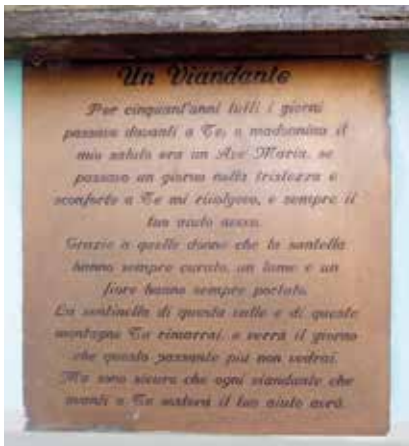 Un Viandante
Per cinquant'anni tutti i giorni
passavo davanti a Te, o madonnina il
mio saluto era un Ave Maria, se
passavo un giorno nella tristezza e
sconforto a Te mi rivolgevo, e sempre il
tuo aiuto avevo.
Grazie a quelle donne che la santella
hanno sempre curato, un lume e un
fiore hanno sempre portato.
La sentinella di questa valle e di queste
montagne Tu rimarrai, e verrà il giorno
che questo passante più non vedrai.
Ma sono sicuro che ogni viandante che
avanti a Te sosterà il tuo aiuto avrà.